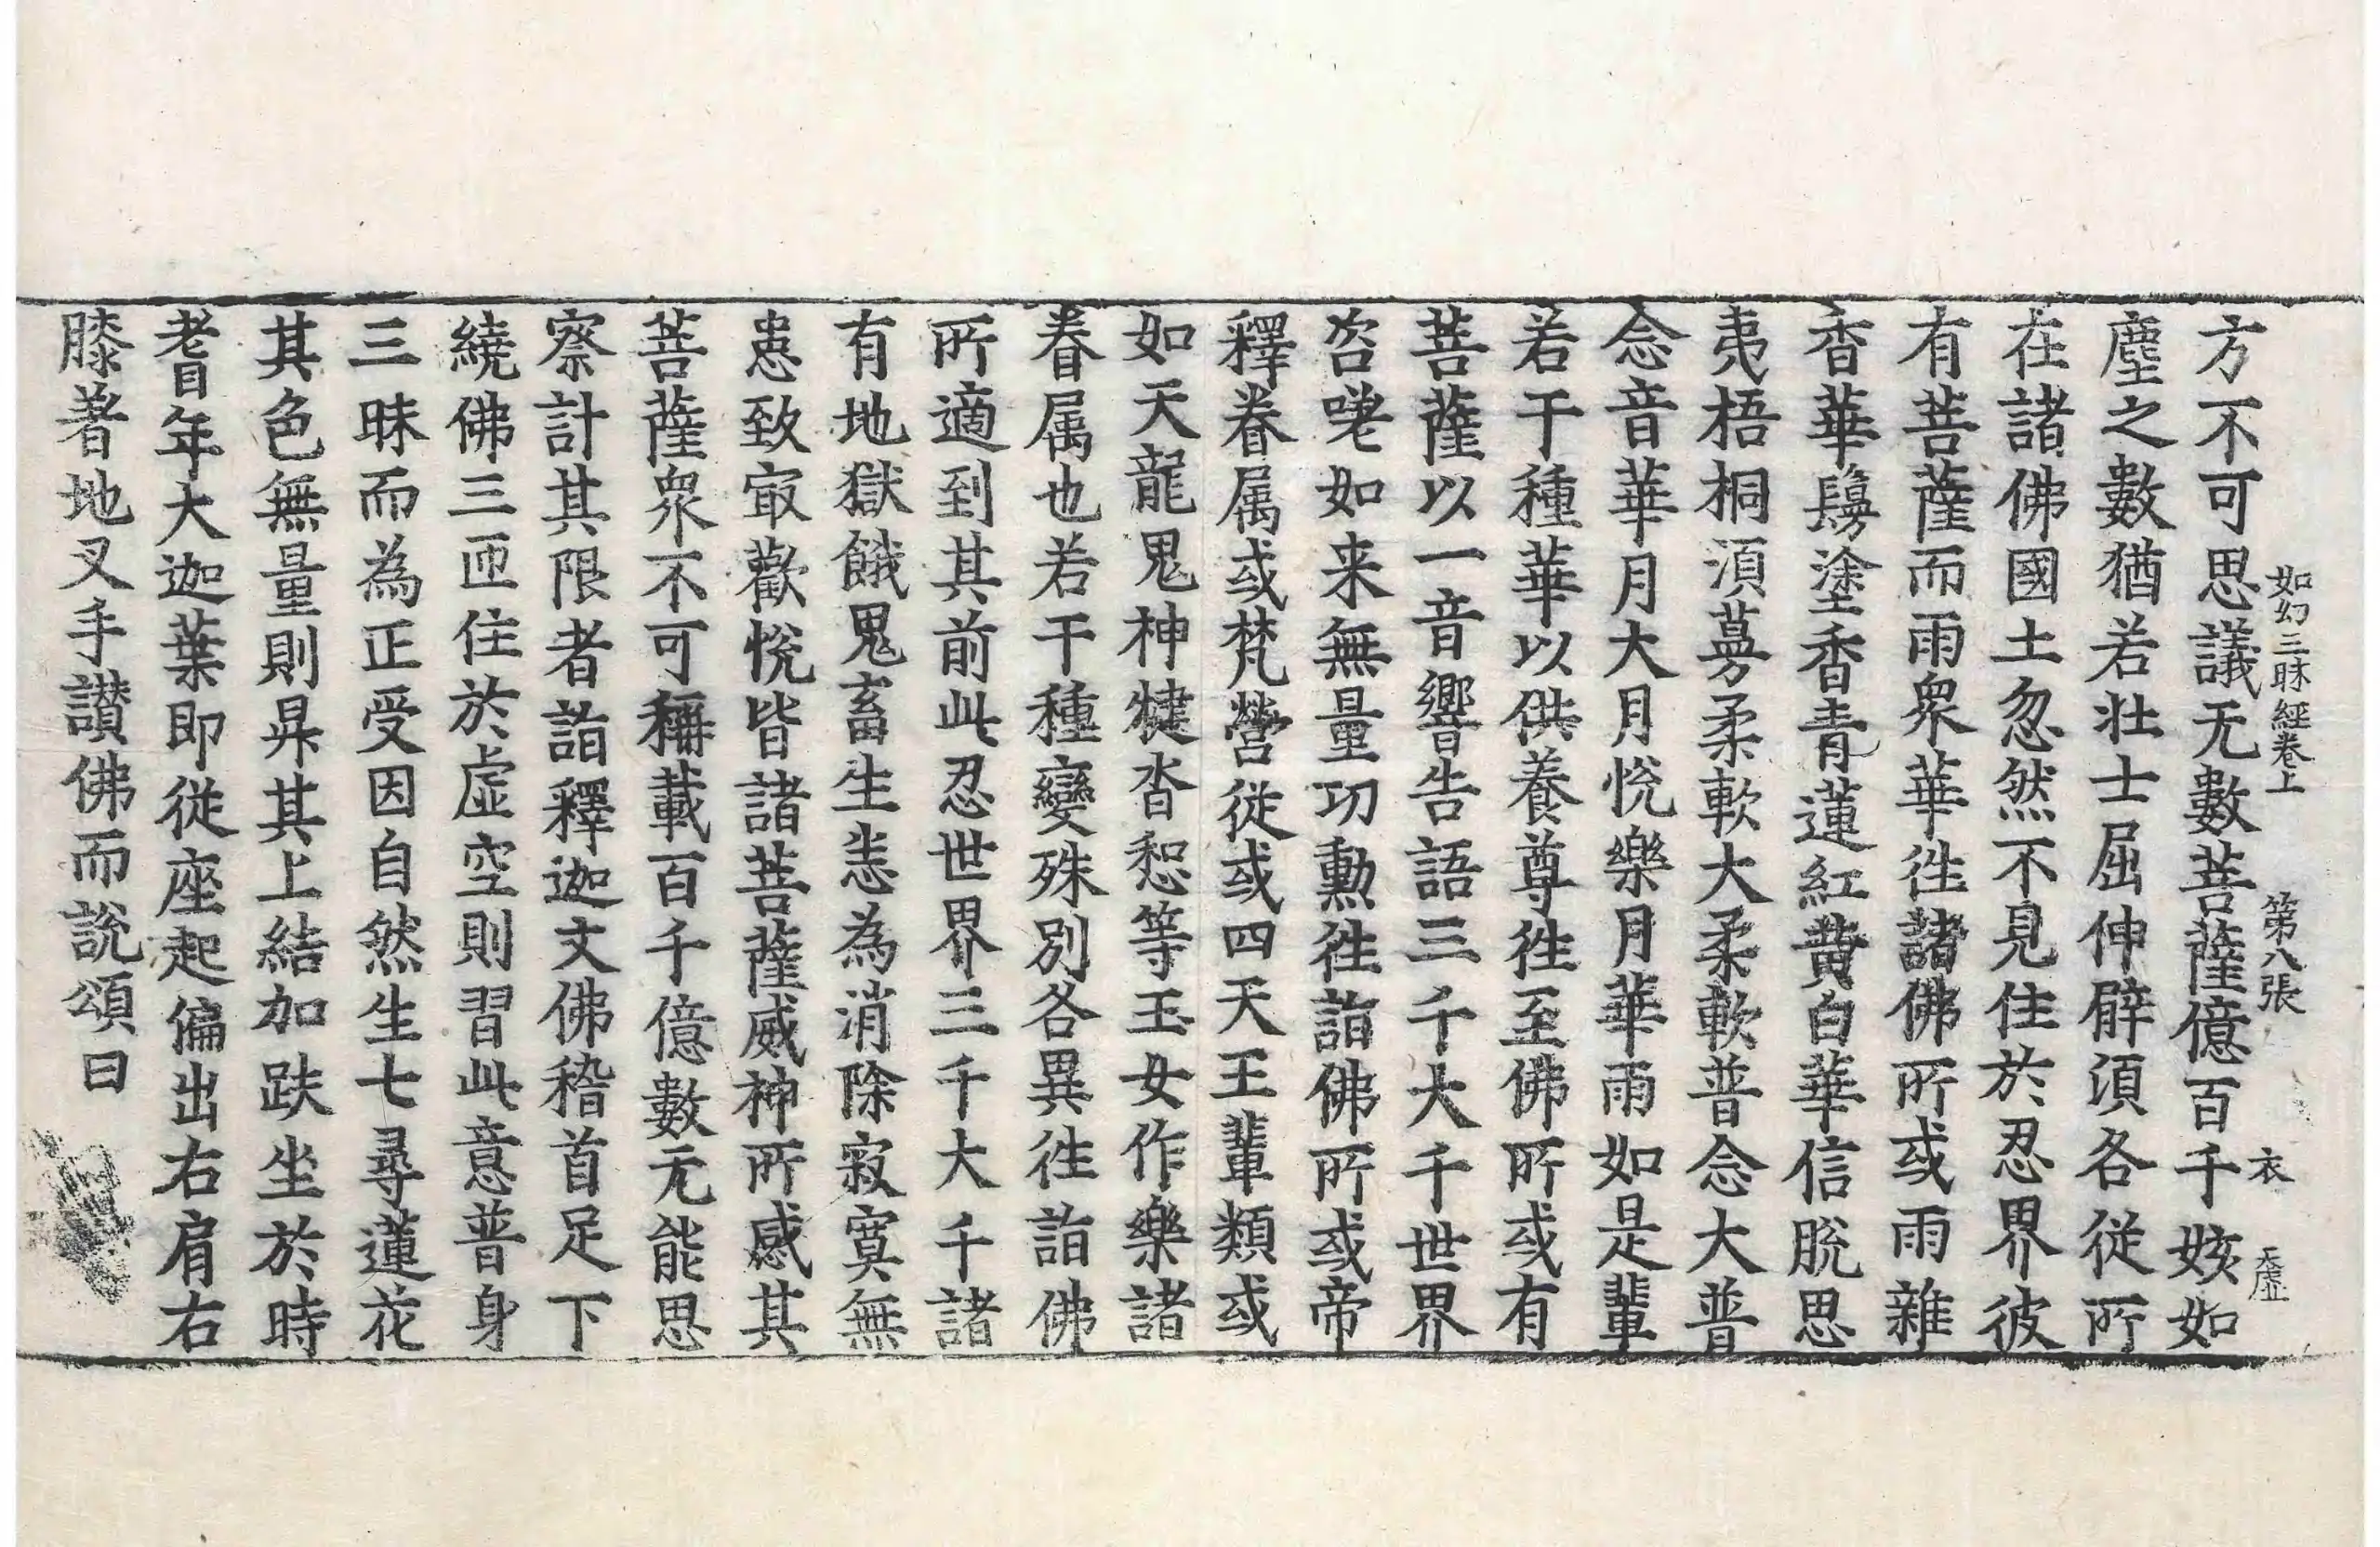 如幻三昧經卷上　第八張　衣　天虛
方不可思議无數菩薩億百千姟如
塵之數猶若壯士屈伸臂湏各從所
在諸佛國土忽然不見住於忍界彼
有菩薩而雨衆華徃諸佛所或雨雜
香華鬘塗香青蓮紅黄白華信脫思
夷梧桐湏蔓柔軟大柔軟普念大普
念音華月大月悅樂月華雨如是輩
若干種華以供養尊徃至佛所或有
菩薩以一音響告語三千大千世界
咨嗟如来無量功勲徃詣佛所或帝
釋眷属或梵營從或四天王輩類或
如天龍鬼神揵沓惒等玉女作樂諸
眷属也若干種變殊別各異徃詣佛
所適到其前此忍世界三千大千諸
有地獄餓鬼畜生恙為消除寂寞無
患致㝡歡悅皆諸菩薩威神所感其
菩薩衆不可稱載百千億數无能思
察計其限者詣釋迦文佛稽首足下
繞佛三匝住於虛空則習此意普身
三昧而為正受因自然生七尋蓮花
其色無量則昇其上結加趺坐於時
耆年大迦葉即從座起偏出右肩右
膝著地叉手讃佛而說頌曰